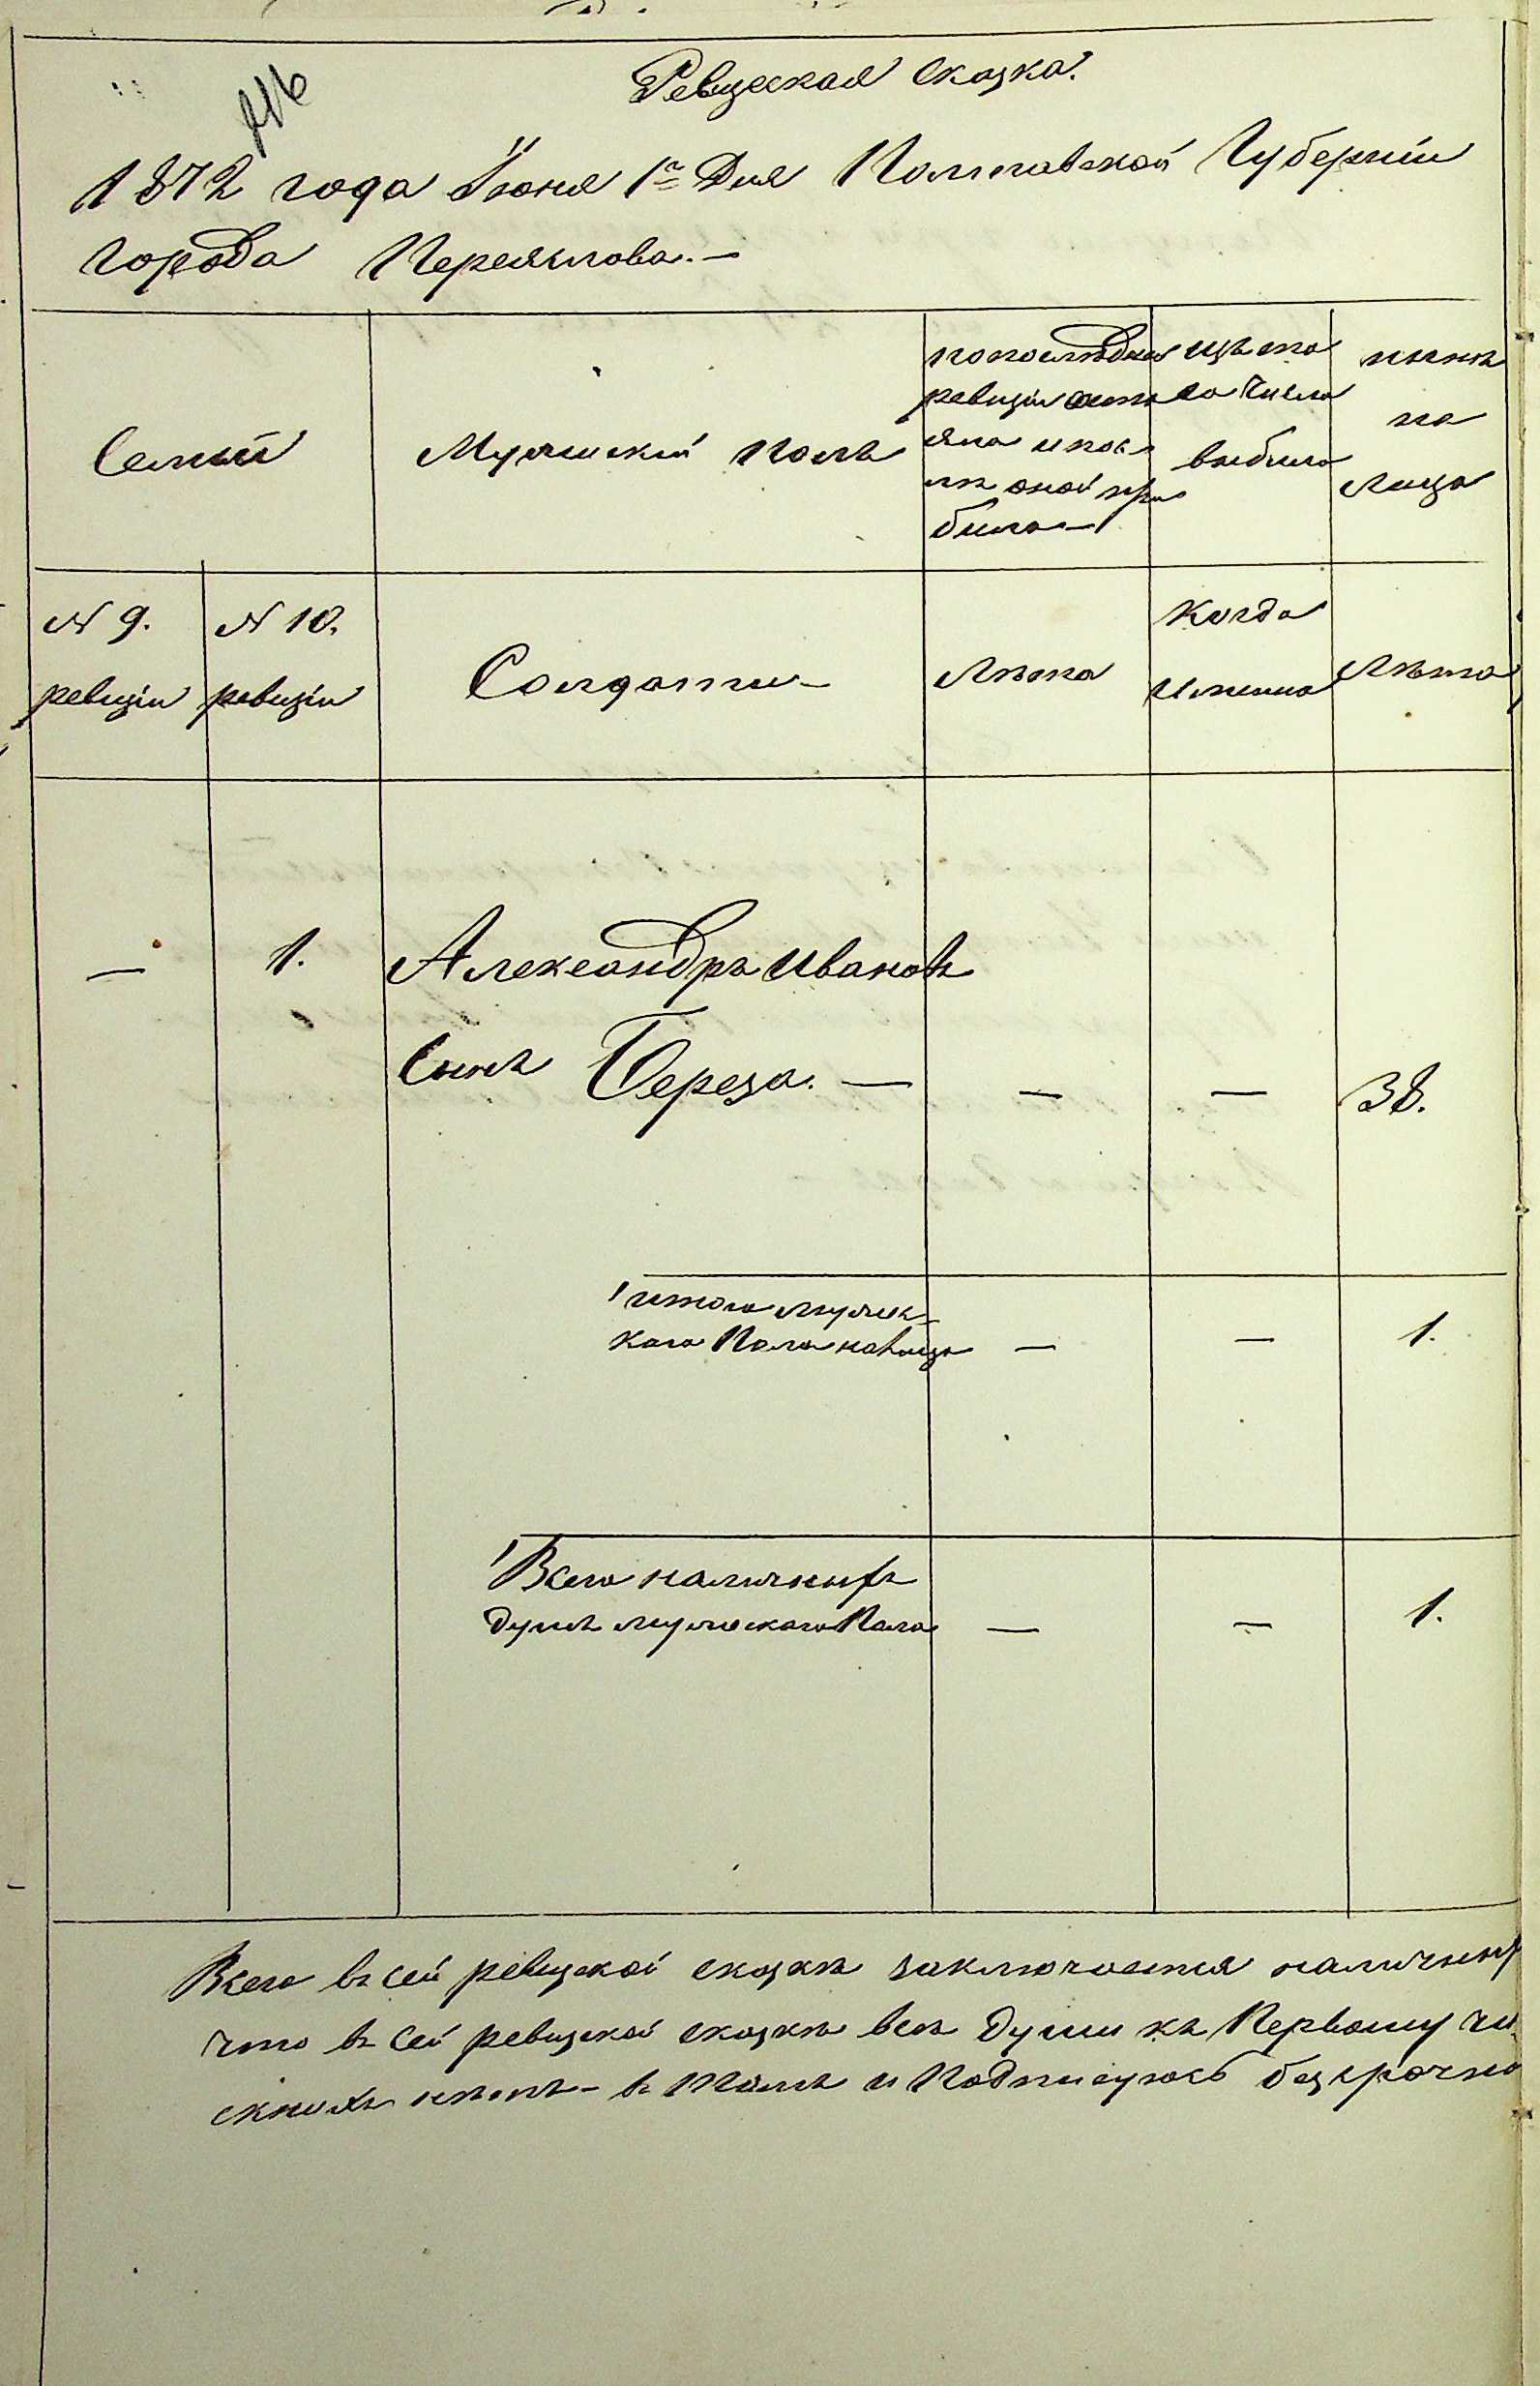 Ревизская сказка.
1872 года Іюня 1го Дня Полтавской Губерніи
города Переяслова. —
Семьи
Мужескій полъ
по последней
ревизіи состо
яло и пос-
лѣ оной при
было —
изъ того
числа
выбыло
нынѣ
на
лицо
N 9.
ревизіи
N 10.
ревизіи
Солдаты —
Лѣта
Когда
Именно
Лѣта
— 1. Александръ Ивановъ
Сынъ Береза. — — — 38.
итого мужес-
каго Пола налицо — — 1.
Всего наличныхъ
душъ мужескаго Пола — — 1.
Всего въ сей ревизской сказкѣ заключается наличных
что въ сей ревизской сказкѣ всѣ души къ Первому чи
нѣтъ - въ томъ и Подписуюсь безсрочно